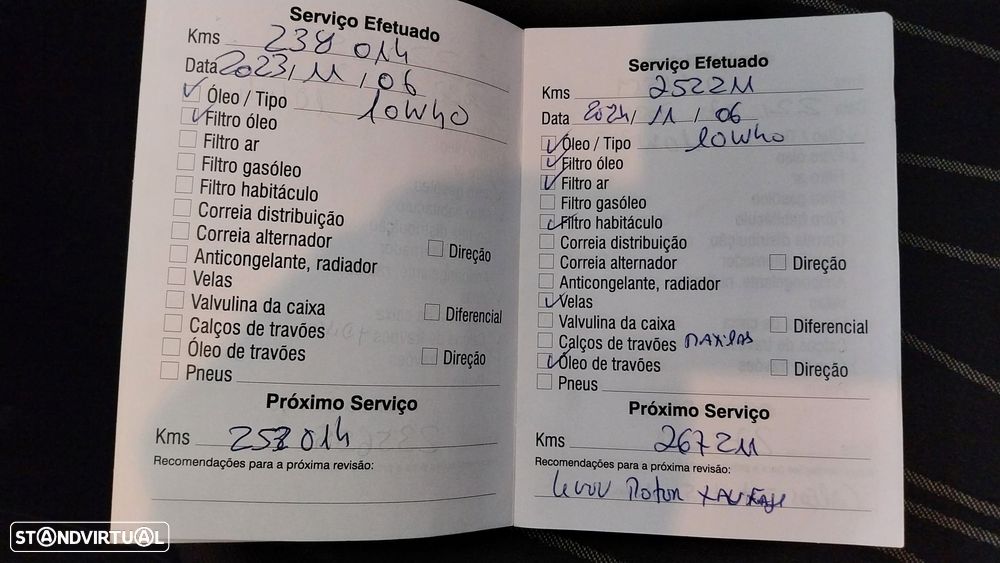 Serviço Efetuado
Kms 238 014
Data 2023/ 11 / 06
Óleo / Tipo 10W40
Filtro óleo
Filtro ar
Filtro gasóleo
Filtro habitáculo
Correia distribuição
Correia alternador
Direção
Anticongelante, radiador
Velas
Valvulina da caixa
Diferencial
Calços de travões
Óleo de travões
Direção
Pneus
Próximo Serviço
Kms 253 014
Recomendações para a próxima revisão:
Serviço Efetuado
Kms 252211
Data 2024/ 11 / 06
Óleo / Tipo 10W40
Filtro óleo
Filtro ar
Filtro gasóleo
Filtro habitáculo
Correia distribuição
Correia alternador
Direção
Anticongelante, radiador
Velas
Valvulina da caixa
Diferencial
Calços de travões maxilas
Óleo de travões
Direção
Pneus
Próximo Serviço
Kms 267211
Recomendações para a próxima revisão:
STANDVIRTUAL